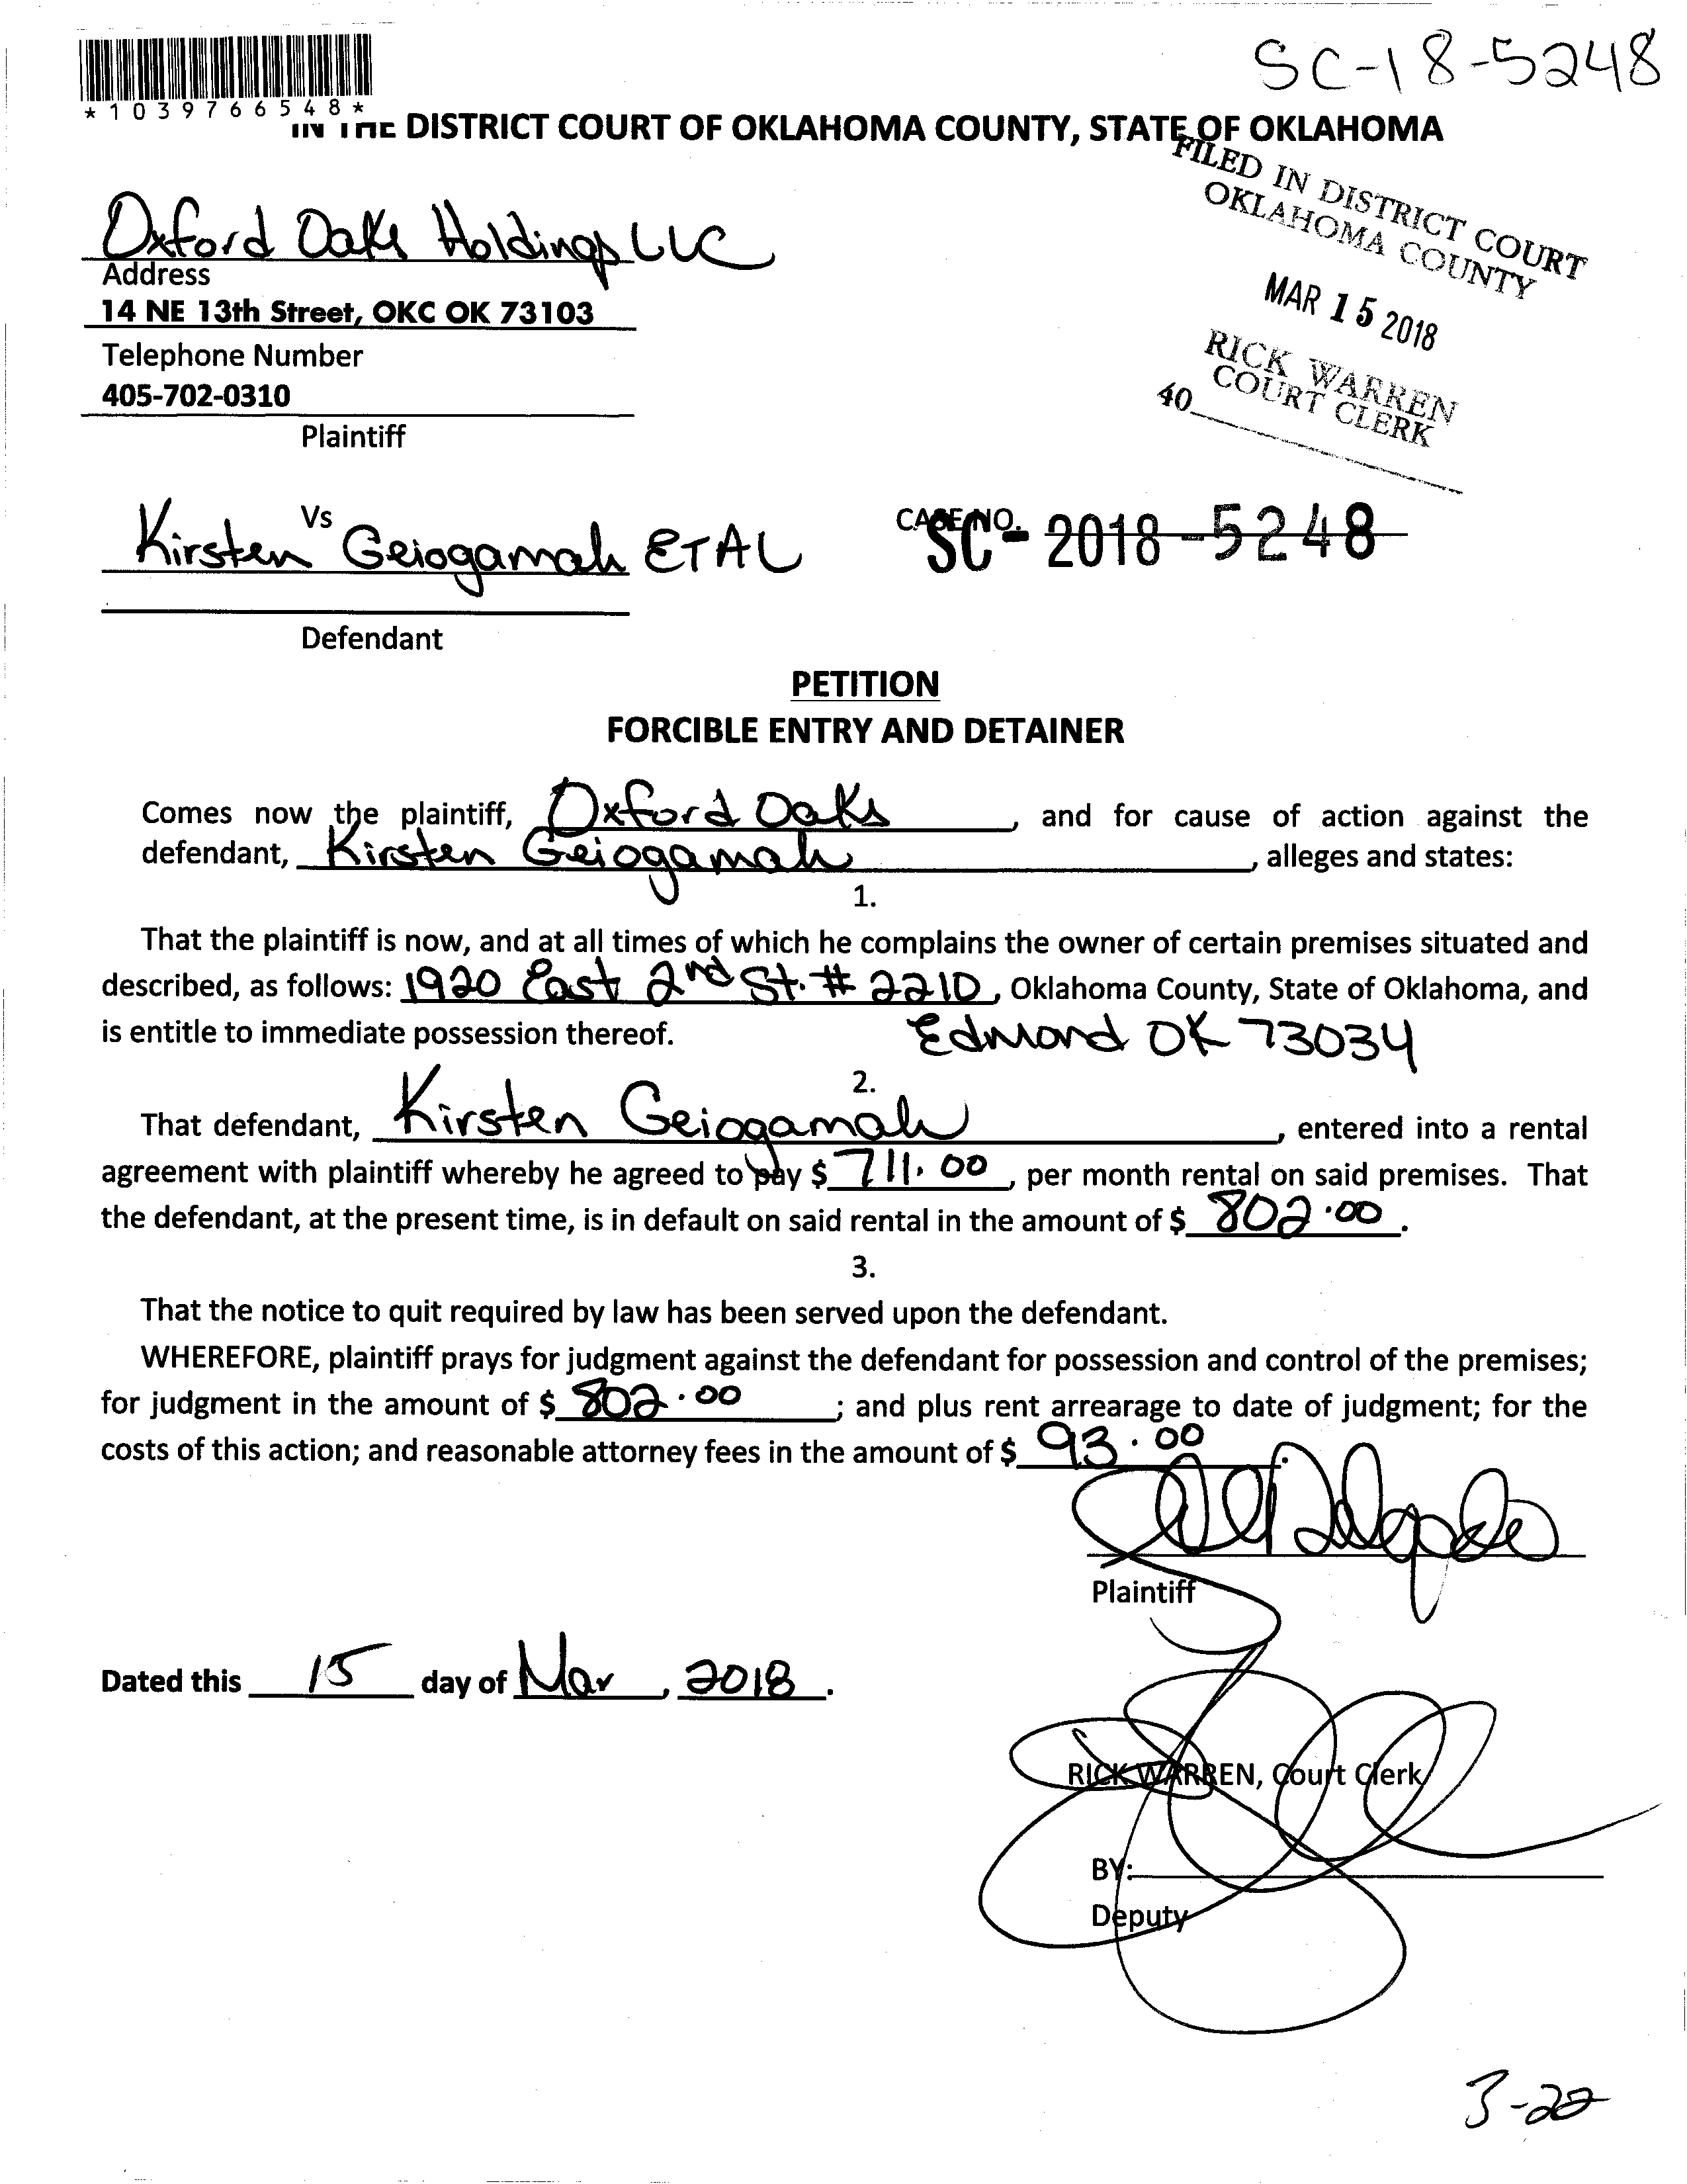 SC-18-5248
*1039766548*
IN THE DISTRICT COURT OF OKLAHOMA COUNTY, STATE OF OKLAHOMA
FILED IN DISTRICT COURT
OKLAHOMA COUNTY
MAR 15 2018
RICK WARREN
COURT CLERK
40
Oxford Oaks Holdings LLC
Address
14 NE 13th Street, OKC OK 73103
Telephone Number
405-702-0310
Plaintiff
Vs
Kirsten Geiogamah ETAL
CASE NO.
SC- 2018-5248
Defendant
PETITION
FORCIBLE ENTRY AND DETAINER
Comes now the plaintiff, Oxford Oaks, and for cause of action against the
defendant, Kirsten Geiogamah, alleges and states:
1.
That the plaintiff is now, and at all times of which he complains the owner of certain premises situated and
described, as follows: 1920 East 2nd St. # 221D, Oklahoma County, State of Oklahoma, and
is entitle to immediate possession thereof. Edmond OK 73034
2.
That defendant, Kirsten Geiogamah, entered into a rental
agreement with plaintiff whereby he agreed to pay $ 711.00, per month rental on said premises. That
the defendant, at the present time, is in default on said rental in the amount of $ 802.00.
3.
That the notice to quit required by law has been served upon the defendant.
WHEREFORE, plaintiff prays for judgment against the defendant for possession and control of the premises;
for judgment in the amount of $ 802.00; and plus rent arrearage to date of judgment; for the
costs of this action; and reasonable attorney fees in the amount of $ 93.00.
Plaintiff
Dated this 15 day of Mar, 2018.
RICK WARREN, Court Clerk
BY:
Deputy
3-22